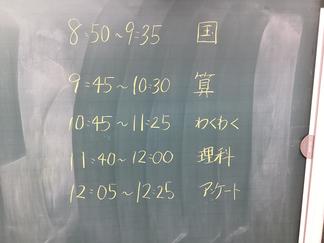 8:50~9:35 国
9:45~10:30 算
10:45~11:25 わくわく
11:40~12:00 理科
12:05~12:25 アンケート